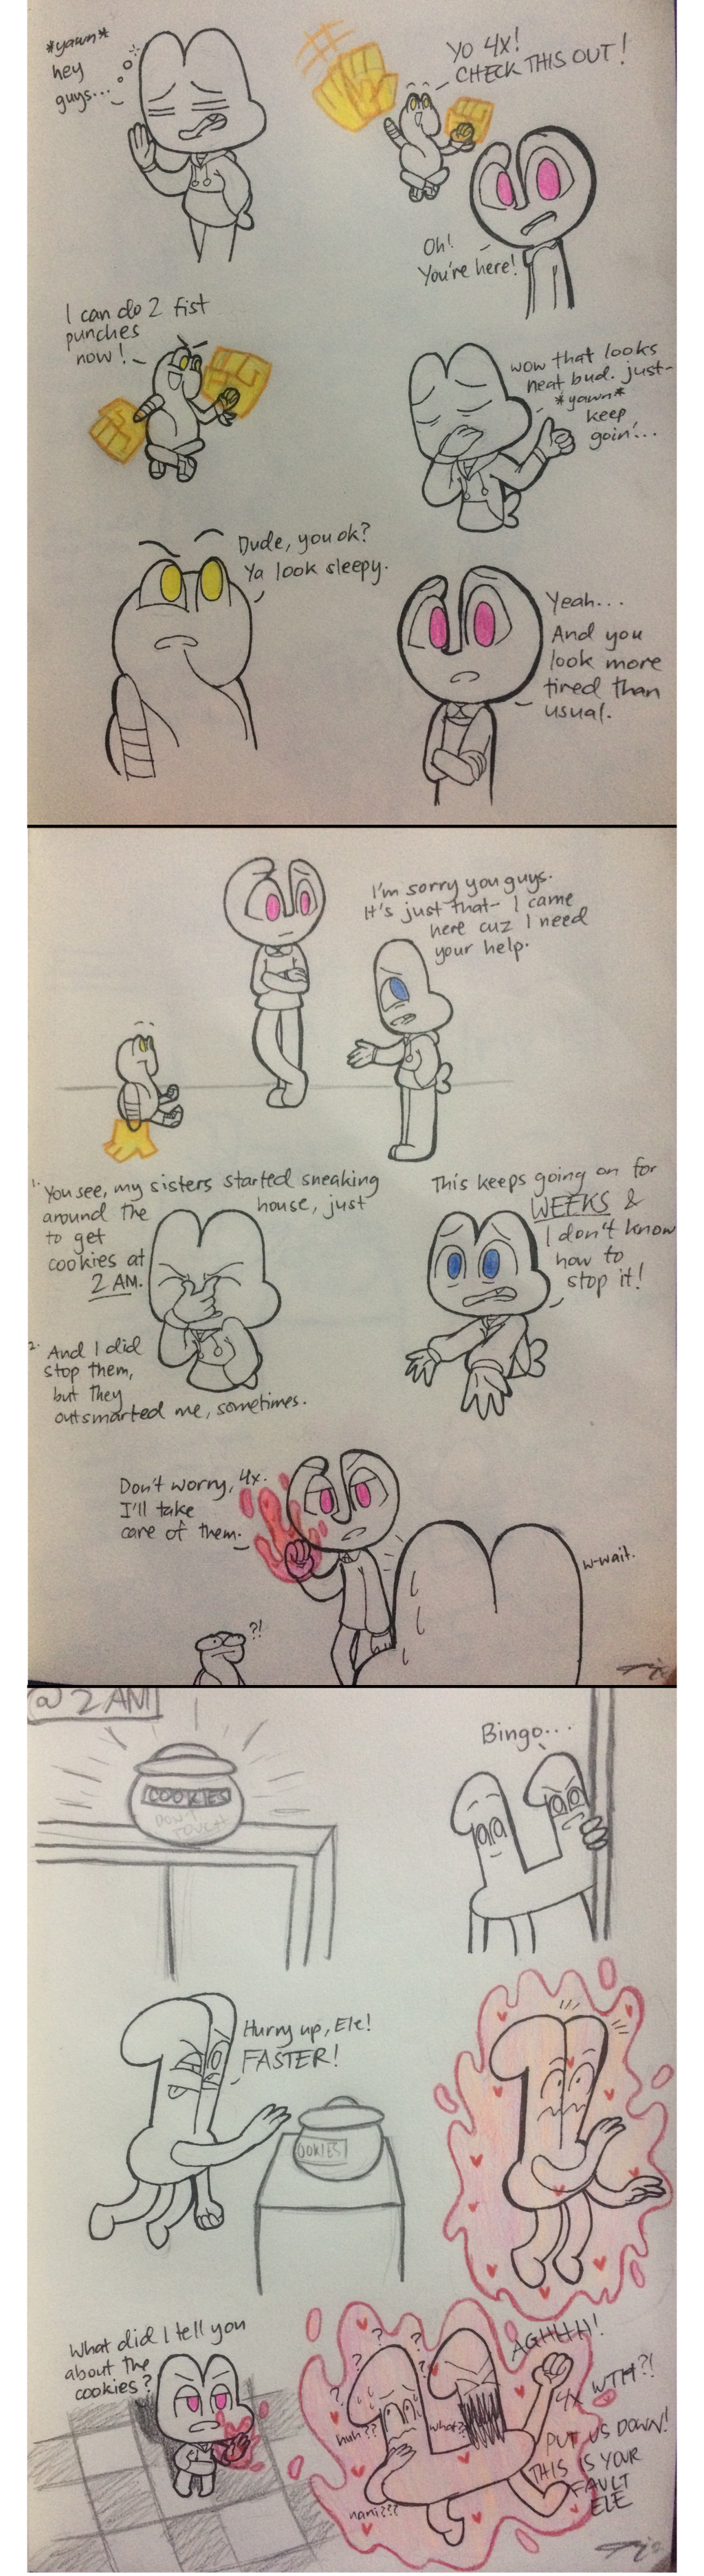 *yawn*
hey
guys...
YO 4X!
CHECK THIS OUT!
Oh!
You're here!
I can do 2 fist
punches
now!
wow that looks
neat bud. just-
*yawn*
keep
goin'...
Dude, you ok?
Ya look sleepy.
Yeah...
And you
look more
tired than
usual.
I'm sorry you guys.
It's just that- I came
here cuz I need
your help.
1. You see, my sisters started sneaking
around the house, just
to get
cookies at
2 AM.
2. And I did
stop them,
but they
outsmarted me, sometimes.
This keeps going on for
WEEKS &
I don't know
how to
stop it!
Don't worry, 4x.
I'll take
care of them.
?!
w-wait.
@ 2 AM
COOKIES
DON'T
TOUCH
Bingo...
Hurry up, Ele!
FASTER!
OOKIES
What did I tell you
about the
cookies?
? ? ? ? ?
huh??
what?
nani???
AGHHH!
4X WTH?!
PUT US DOWN!
THIS IS YOUR
FAULT
ELE